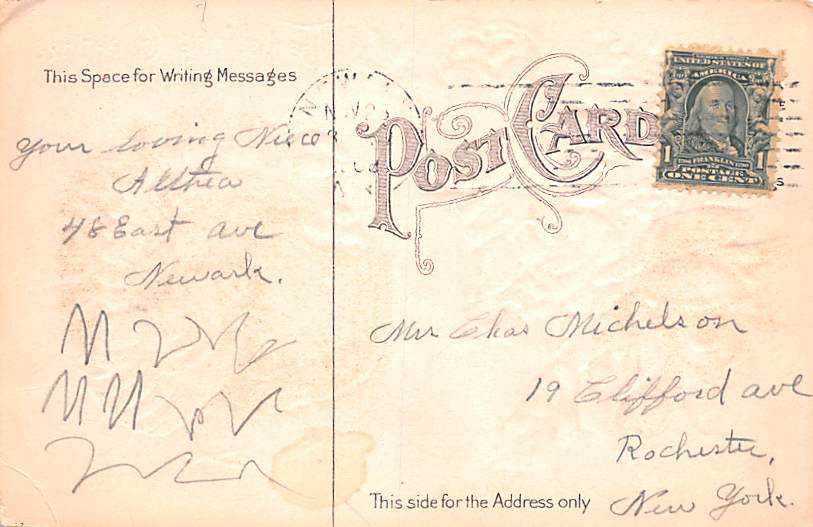 This Space for Writing Messages
POST CARD
UNITED STATES OF
AMERICA
1 FRANKLIN 1
POSTAGE
ONE CENT
Your loving Niece
Althea
48 East ave
Newark.
Mr Chas Michelson
19 Clifford ave
Rochester,
New York.
This side for the Address only